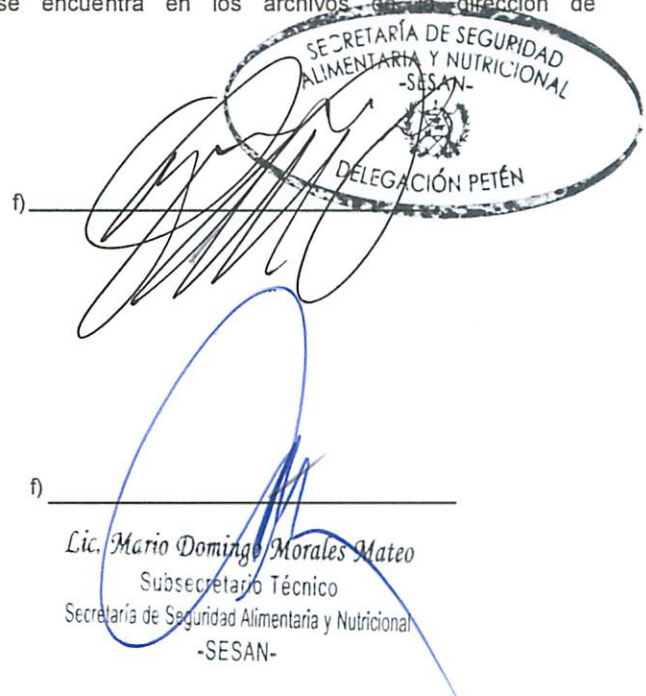 se encuentra en los archivos de la dirección de
SECRETARÍA DE SEGURIDAD
ALIMENTARIA Y NUTRICIONAL
-SESAN-
DELEGACIÓN PETÉN
f)
f)
Lic. Mario Domingo Morales Mateo
Subsecretario Técnico
Secretaría de Seguridad Alimentaria y Nutricional
-SESAN-